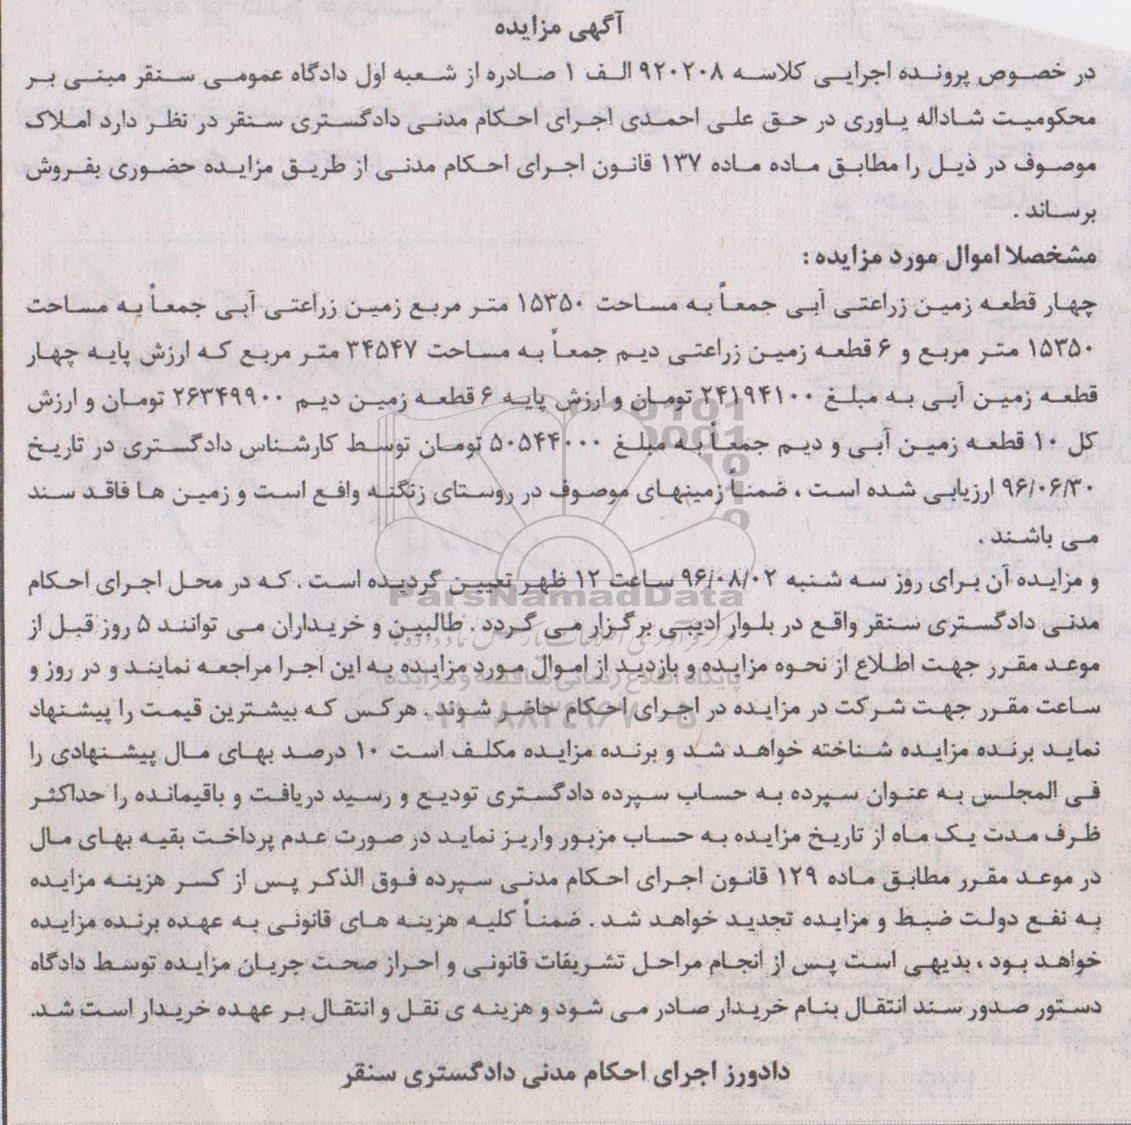 آگهی مزایده
در خصوص پرونده اجرایی کلاسه ۹۲۰۲۰۸ الف ۱ صادره از شعبه اول دادگاه عمومی سنقر مبنی بر
محکومیت شاداله یاوری در حق علی احمدی اجرای احکام مدنی دادگستری سنقر در نظر دارد املاک
موصوف در ذیل را مطابق ماده ماده ۱۳۷ قانون اجرای احکام مدنی از طریق مزایده حضوری بفروش
برساند .
مشخصلا اموال مورد مزایده :
چهار قطعه زمین زراعتی آبی جمعاً به مساحت ۱۵۳۵۰ متر مربع زمین زراعتی آبی جمعاً به مساحت
۱۵۳۵۰ متر مربع و ۶ قطعه زمین زراعتی دیم جمعاً به مساحت ۳۴۵۴۷ متر مربع که ارزش پایه چهار
قطعه زمین آبی به مبلغ ۲۴۱۹۴۱۰۰ تومان و ارزش پایه ۶ قطعه زمین دیم ۲۶۳۴۹۹۰۰ تومان و ارزش
کل ۱۰ قطعه زمین آبی و دیم جمعاً به مبلغ ۵۰۵۴۴۰۰۰ تومان توسط کارشناس دادگستری در تاریخ
۹۶/۰۶/۳۰ ارزیابی شده است ، ضمناً زمینهای موصوف در روستای زنگنه واقع است و زمین ها فاقد سند
می باشند .
و مزایده آن برای روز سه شنبه ۹۶/۰۸/۰۲ ساعت ۱۲ ظهر تعیین گردیده است . که در محل اجرای احکام
ParsNamadData
مدنی دادگستری سنقر واقع در بلوار ادیبی برگزار می گردد . طالبین و خریداران می توانند ۵ روز قبل از
موعد مقرر جهت اطلاع از نحوه مزایده و بازدید از اموال مورد مزایده به این اجرا مراجعه نمایند و در روز و
پایگاه اطلاع رسانی مناقصه و مزایده
ساعت مقرر جهت شرکت در مزایده در اجرای احکام حاضر شوند . هرکس که بیشترین قیمت را پیشنهاد
نماید برنده مزایده شناخته خواهد شد و برنده مزایده مکلف است ۱۰ درصد بهای مال پیشنهادی را
فی المجلس به عنوان سپرده به حساب سپرده دادگستری تودیع و رسید دریافت و باقیمانده را حداکثر
ظرف مدت یک ماه از تاریخ مزایده به حساب مزبور واریز نماید در صورت عدم پرداخت بقیه بهای مال
در موعد مقرر مطابق ماده ۱۲۹ قانون اجرای احکام مدنی سپرده فوق الذکر پس از کسر هزینه مزایده
به نفع دولت ضبط و مزایده تجدید خواهد شد . ضمناً کلیه هزینه های قانونی به عهده برنده مزایده
خواهد بود ، بدیهی است پس از انجام مراحل تشریفات قانونی و احراز صحت جریان مزایده توسط دادگاه
دستور صدور سند انتقال بنام خریدار صادر می شود و هزینه ی نقل و انتقال بر عهده خریدار است شد.
دادورز اجرای احکام مدنی دادگستری سنقر